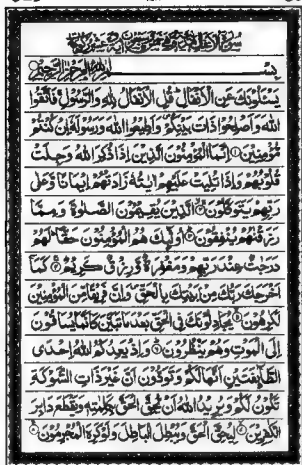 سُورَةُ الْاَنْفَالِ
بِسْمِ اللّٰهِ الرَّحْمٰنِ الرَّحِيْمِ
يَسْـَٔلُوْنَكَ عَنِ الْاَنْفَالِ قُلِ الْاَنْفَالُ لِلّٰهِ وَالرَّسُوْلِ فَاتَّقُوا
اللّٰهَ وَاَصْلِحُوْا ذَاتَ بَيْنِكُمْ وَاَطِيْعُوا اللّٰهَ وَرَسُوْلَهٗ اِنْ كُنْتُمْ
مُّؤْمِنِيْنَ ۝ اِنَّمَا الْمُؤْمِنُوْنَ الَّذِيْنَ اِذَا ذُكِرَ اللّٰهُ وَجِلَتْ
قُلُوْبُهُمْ وَاِذَا تُلِيَتْ عَلَيْهِمْ اٰيٰتُهٗ زَادَتْهُمْ اِيْمَانًا وَّعَلٰى
رَبِّهِمْ يَتَوَكَّلُوْنَ ۝ الَّذِيْنَ يُقِيْمُوْنَ الصَّلٰوةَ وَمِمَّا
رَزَقْنٰهُمْ يُنْفِقُوْنَ ۝ اُولٰٓئِكَ هُمُ الْمُؤْمِنُوْنَ حَقًّا لَهُمْ
دَرَجٰتٌ عِنْدَ رَبِّهِمْ وَمَغْفِرَةٌ وَّرِزْقٌ كَرِيْمٌ ۝ كَمَآ
اَخْرَجَكَ رَبُّكَ مِنْۢ بَيْتِكَ بِالْحَقِّ وَاِنَّ فَرِيْقًا مِّنَ الْمُؤْمِنِيْنَ
لَكٰرِهُوْنَ ۝ يُجَادِلُوْنَكَ فِى الْحَقِّ بَعْدَ مَا تَبَيَّنَ كَاَنَّمَا يُسَاقُوْنَ
اِلَى الْمَوْتِ وَهُمْ يَنْظُرُوْنَ ۝ وَاِذْ يَعِدُكُمُ اللّٰهُ اِحْدَى
الطَّآئِفَتَيْنِ اَنَّهَا لَكُمْ وَتَوَدُّوْنَ اَنَّ غَيْرَ ذَاتِ الشَّوْكَةِ
تَكُوْنُ لَكُمْ وَيُرِيْدُ اللّٰهُ اَنْ يُّحِقَّ الْحَقَّ بِكَلِمٰتِهٖ وَيَقْطَعَ دَابِرَ
الْكٰفِرِيْنَ ۝ لِيُحِقَّ الْحَقَّ وَيُبْطِلَ الْبَاطِلَ وَلَوْ كَرِهَ الْمُجْرِمُوْنَ ۝